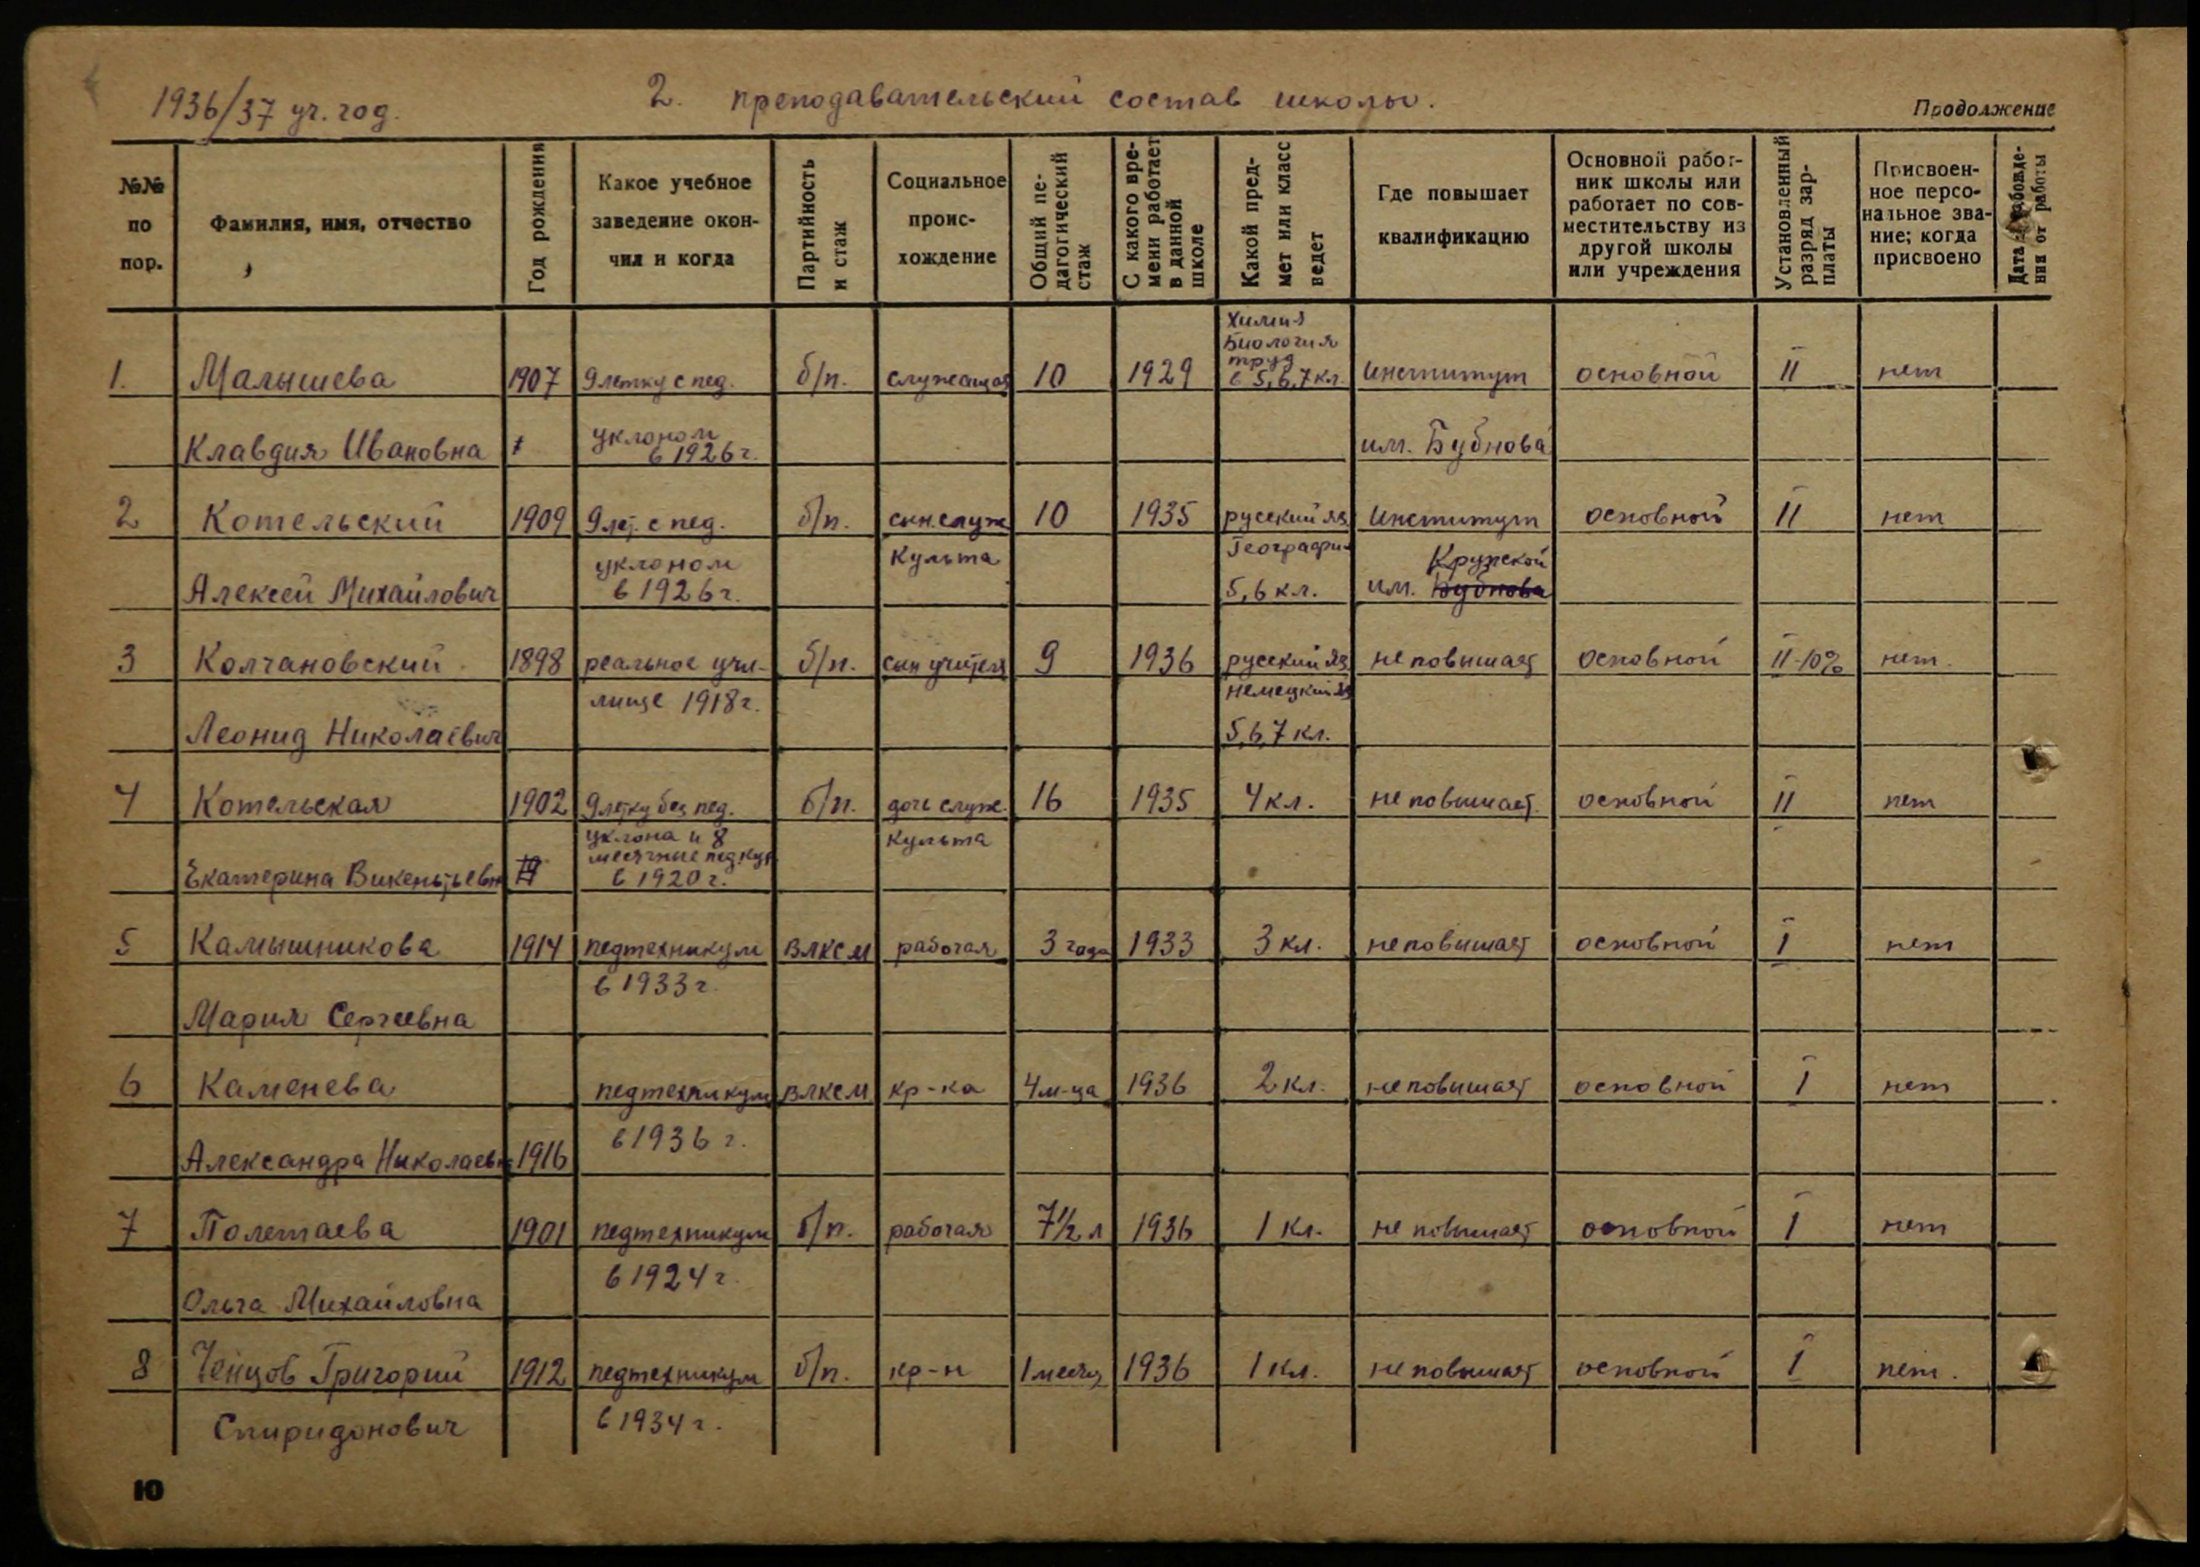 1936/37 уч. год.
2. преподавательский состав школы.
Продолжение
№№ по пор.
Фамилия, имя, отчество
Год рождения
Какое учебное заведение окончил и когда
Партийность и стаж
Социальное происхождение
Общий педагогический стаж
С какого времени работает в данной школе
Какой предмет или класс ведет
Где повышает квалификацию
Основной работник школы или работает по совместительству из другой школы или учреждения
Установленный разряд зарплаты
Присвоенное персональное звание; когда присвоено
Дата ния от работы
Химия
Биология
труд
1. Малышева 1907 9летку с пед. б/п. служащая 10 1929 в 5,6,7 кл. институт основной II нет
Клавдия Ивановна уклоном в 1926 г. им. Бубнова
2 Котельский 1909 9лет. с пед. б/п. сын.служ 10 1935 русский яз. Институт основной II нет
уклоном культа Географи Крупской
Алексей Михайлович в 1926 г. 5,6 кл. им. Бубнова
3 Колчановский 1898 реальное учи- б/п. сын учителя 9 1936 русский яз не повышает основной II-10% нет.
лище 1918 г. немецкий яз
Леонид Николаевич 5,6,7 кл.
4 Котельская 1902 9летку без пед. б/п. дочь служ. 16 1935 4 кл. не повышает. основной II нет
уклона и 8 культа
месячные пед.кур
Екатерина Викентьевн в 1920 г.
5 Камышникова 1914 педтехникум ВЛКСМ рабочая 3 года 1933 3 кл. не повышает основной I нет
в 1933 г.
Мария Сергеевна
6 Каменева педтехникум ВЛКСМ кр-ка 4 м-ца 1936 2 кл. не повышает основной I нет
в 1936 г.
Александра Николаевн 1916
7 Полетаева 1901 педтехникум б/п. рабочая 7½ л 1936 1 кл. не повышает основной I нет
в 1924 г.
Ольга Михайловна
8 Ченцов Григорий 1912 педтехникум б/п. кр-н 1 месяц 1936 1 кл. не повышает основной I нет.
Спиридонович в 1934 г.
10